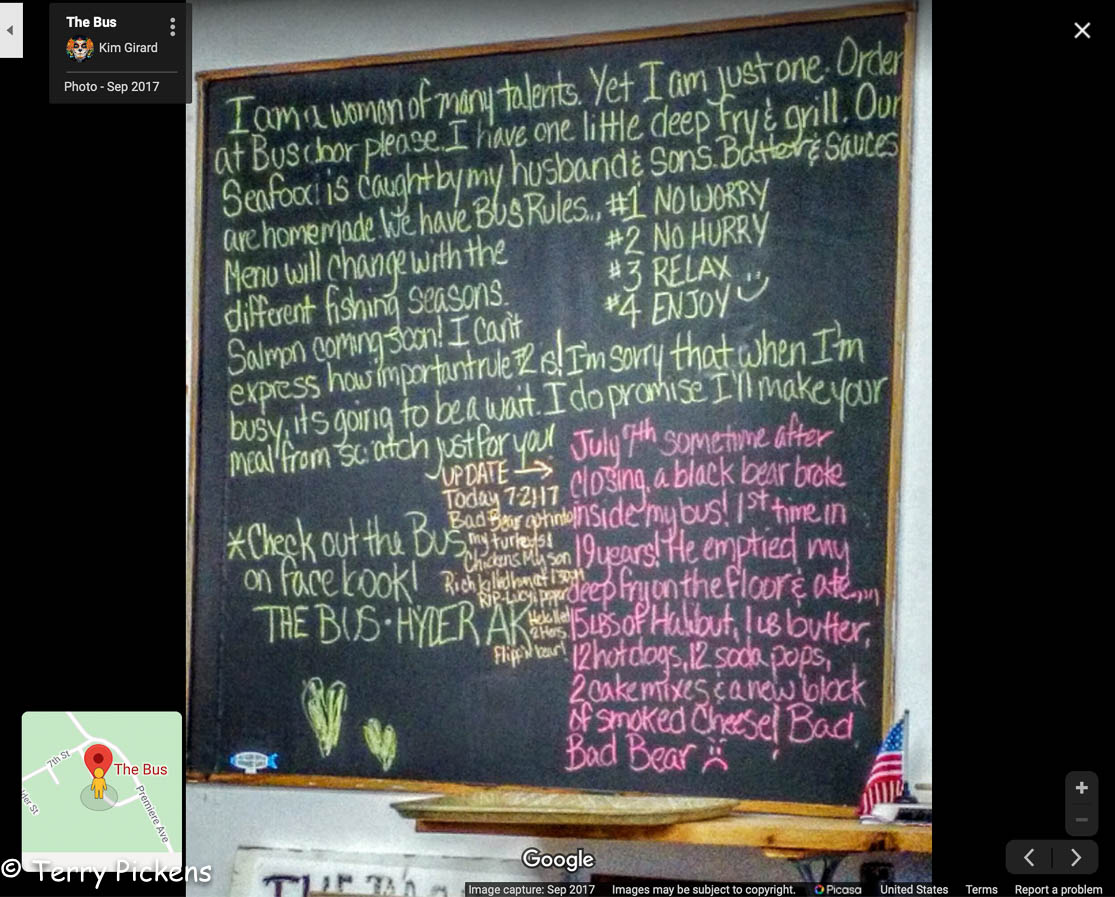 The Bus
Kim Girard
Photo - Sep 2017
I am a woman of many talents. Yet I am just one. Order
at Bus door please. I have one little deep fry & grill. Our
Seafood is caught by my husband & Sons. Batter & Sauces
are homemade. We have Bus Rules... #1 NO WORRY
#2 NO HURRY
#3 RELAX
#4 ENJOY
Menu will change with the
different fishing seasons.
Salmon coming soon! I can't
express how important rule #2 is! I'm sorry that when I'm
busy, its going to be a wait. I do promise I'll make your
meal from scratch just for you!
UPDATE →
Today 7-21-17
Bad Bear got into
my turkeys &
Chickens. My son
Rich killed him at 1:30
RIP-Lucy & pepper
He killed
2 Hens.
Flipp'n bear!
July 7th sometime after
closing, a black bear broke
inside my bus! 1st time in
19 years! He emptied my
deep fry on the floor & ate,,,,
15 LBS of Halibut, 1 LB butter,
12 hotdogs, 12 soda pops,
2 cake mixes & a new block
of smoked Cheese! Bad
Bad Bear
*Check out the Bus
on facebook!
THE BUS · HYDER AK
7th St
The Bus
Premiere Ave
der St
© Terry Pickens
Google
Image capture: Sep 2017 Images may be subject to copyright. Picasa United States Terms Report a problem